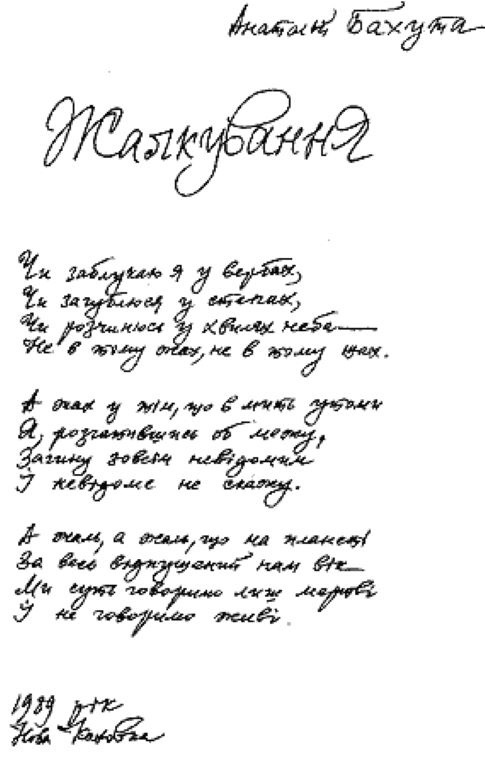 Анатолій Бахута
Жалкування
Чи заблукаю я у вербах,
Чи загублюся у степах,
Чи розчинюсь у хвилях неба
Не в тому жах, не в тому жах.
А жах у тім, що в мить утоми
Я, розгатившись об межу,
Загину зовсім невідомим
І невідоме не скажу.
А жаль, а жаль, що на планеті
За весь відпущений нам вік
Ми суть говоримо лиш мертві
І не говоримо живі.
1989 рік
Нова Каховка